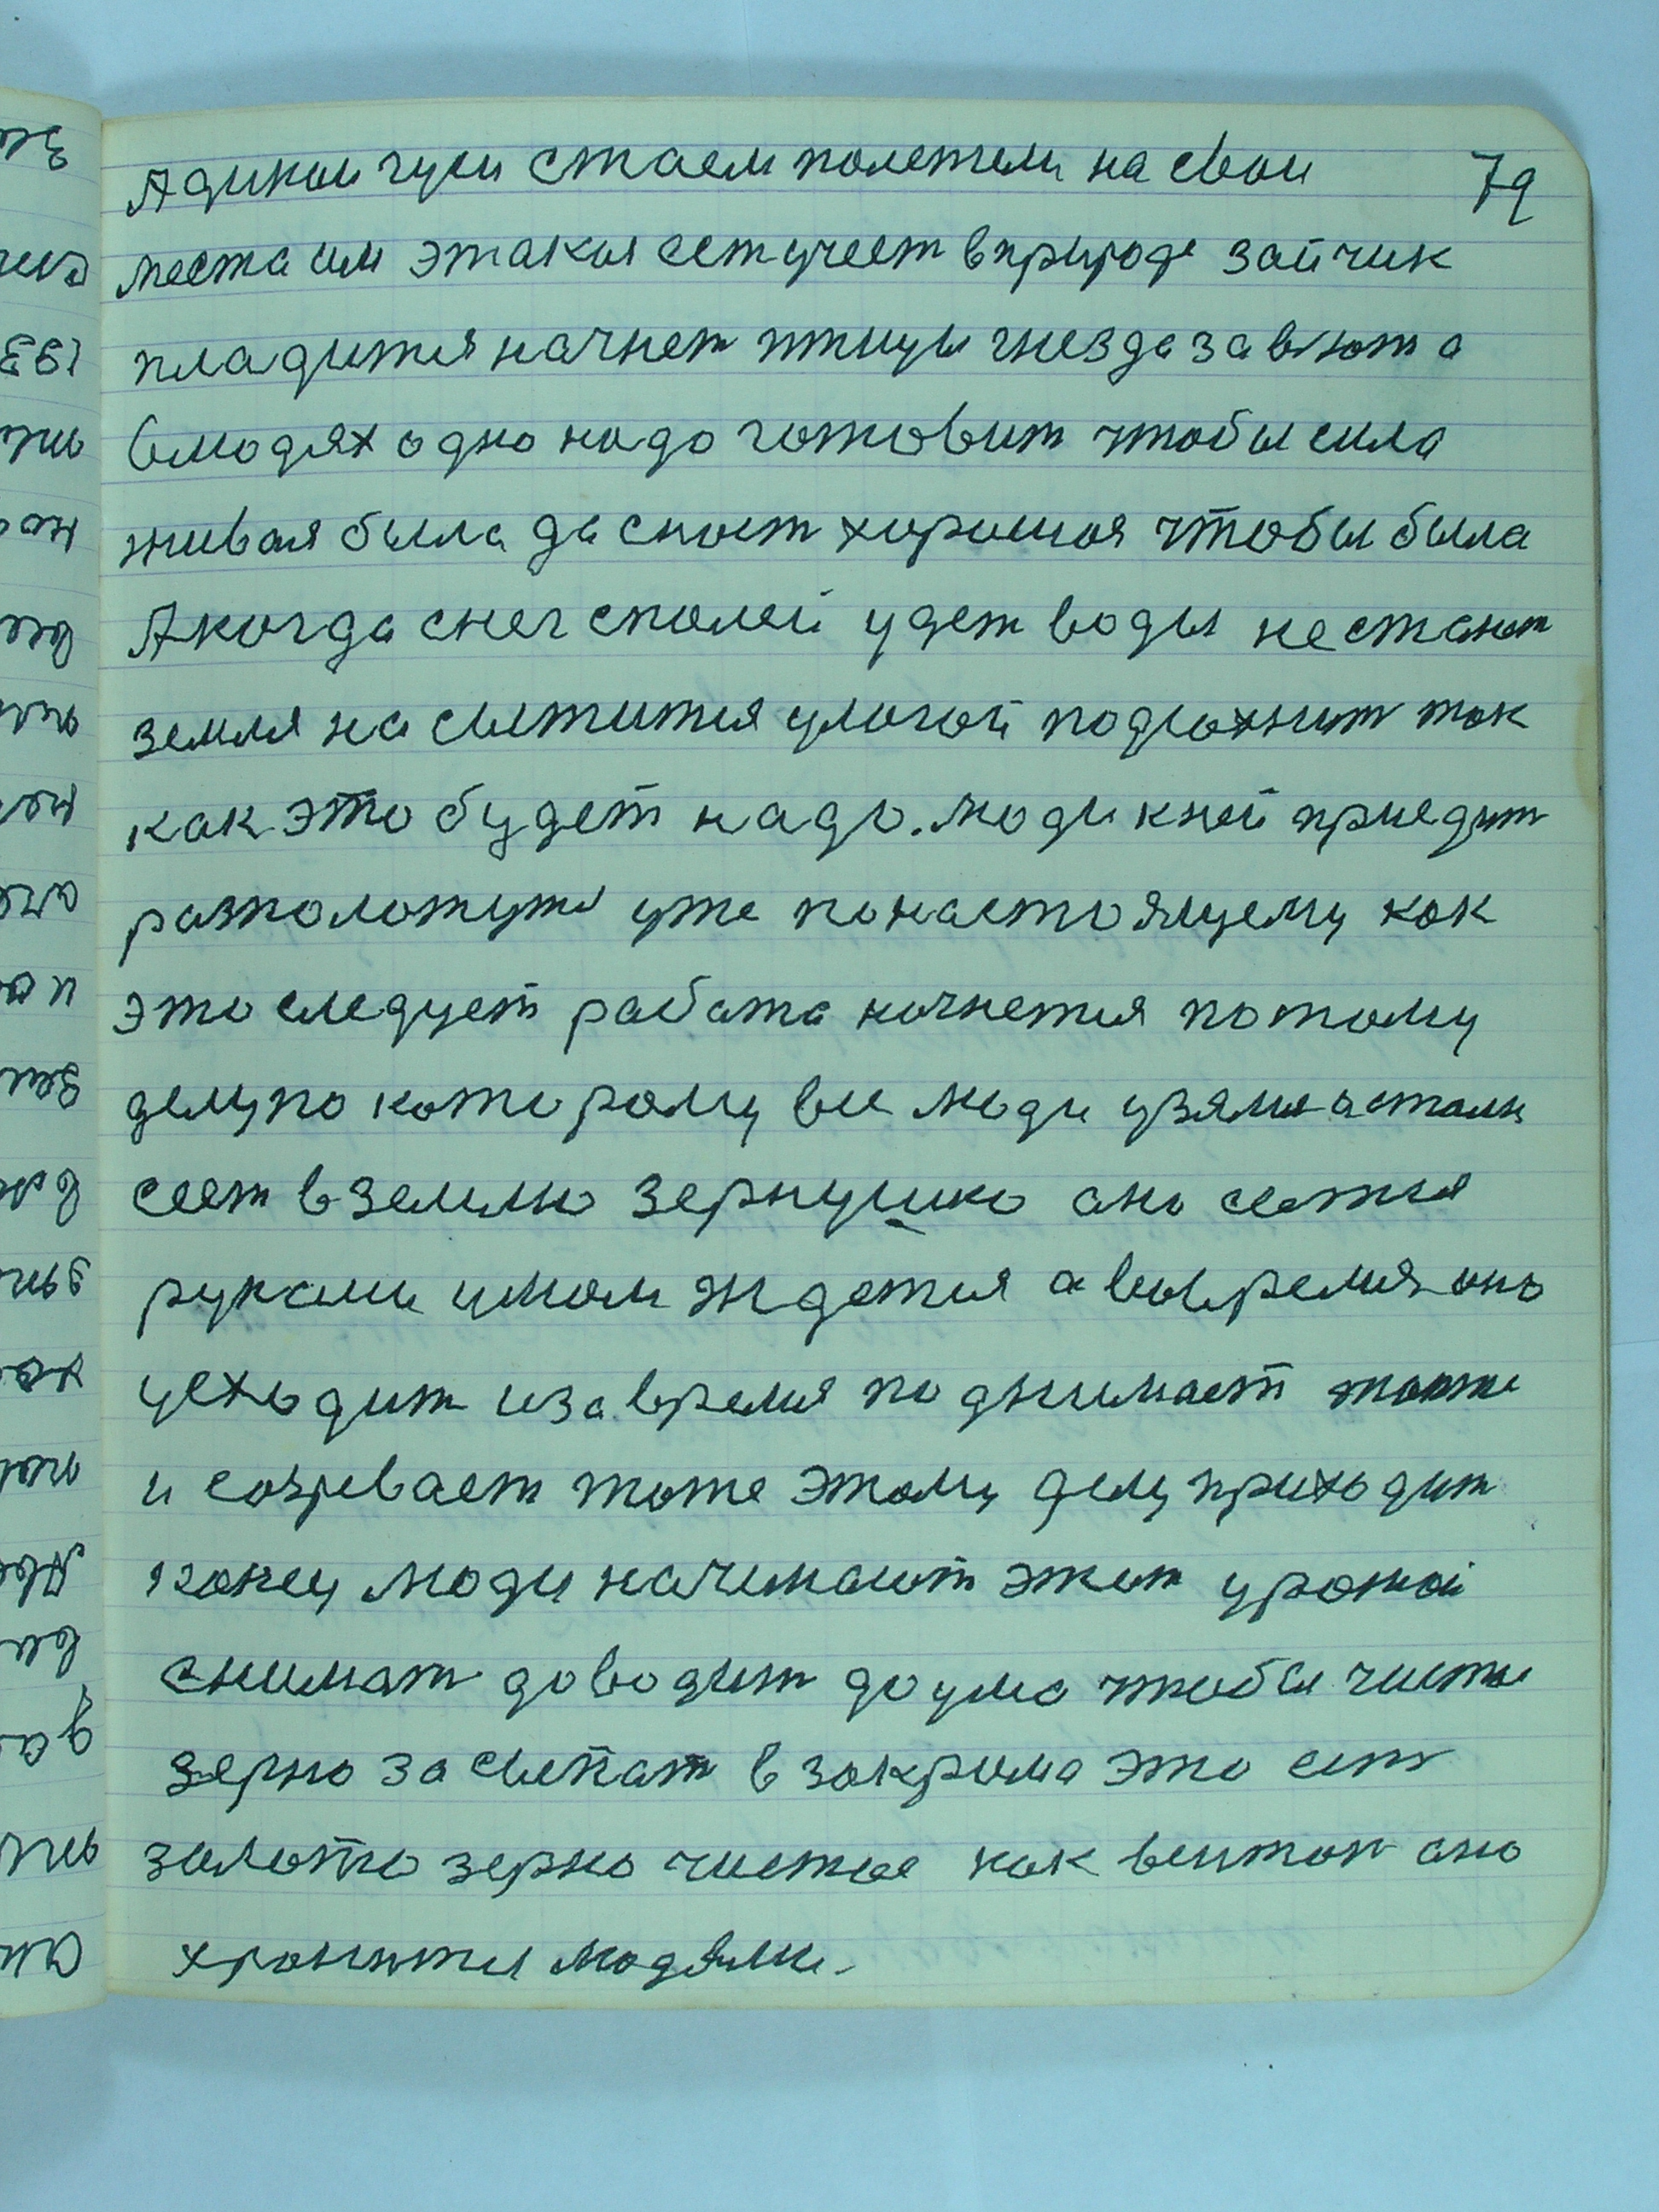 79
А дикои гуси стаем полетели на свои
места им этакия сст учеет в природе зайчик
пладится начнет птицы гнезда завьют а
в людях одно надо готовит чтобы сила
живая была да снаст хорошая чтобы была
А когда снег с полей удет воды не станет
земля насытится улогой подсохнит так
как это будет надо. люди к ней приедит
разположутся уже по настоящему как
это следует работа начнется по тому
делу по которому все люди узялис а стали
сеет в землю зернушко оно сеется
руками умом ждется а вовремя оно
усходит и за время поднимает тоже
и созревает тоже этому делу приходит
конец люди начинают этот урожай
снимат доводит до ума чтобы чисты
зерно засыпат в закрома это ест
золото зерно чистое как
хранится людями.